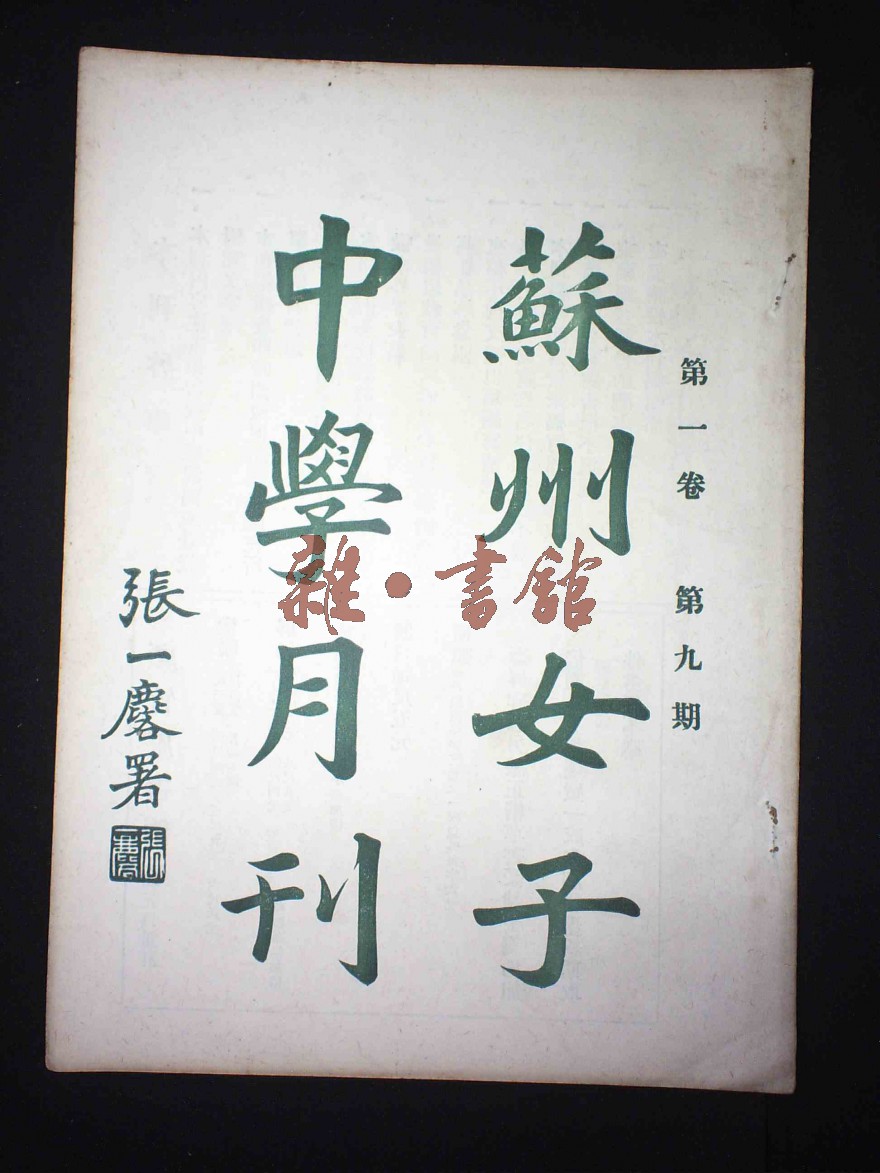 第一卷 第九期
蘇州女子
中學月刊
張一麐署
雜·書舘